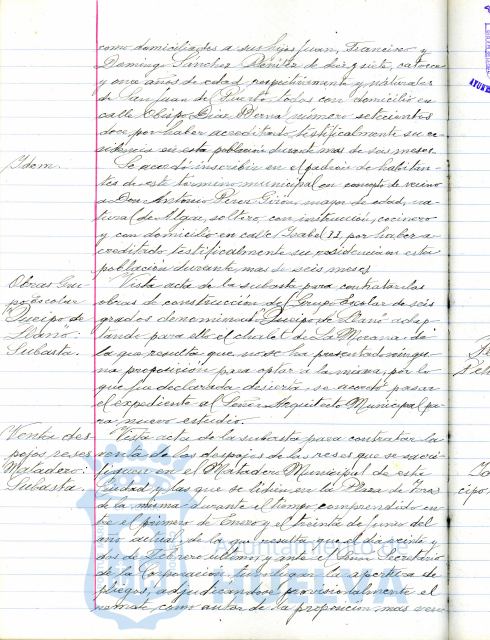 como domiciliados a sus hijos Juan, Francisco y
Domingo Sánchez Benítez de diez y siete, catorce
y once años de edad respectivamente y naturales
de San Juan del Puerto todos con domicilio en
calle Obispo Díaz Bernal número setecientos
doce por haber acreditado testificalmente su re-
sidencia en esta población durante mas de seis meses.
Idem.
Se acordó inscribir en el padrón de habitan-
tes de este término municipal en concepto de vecino
a Don Antonio Pérez Girón, mayor de edad, na-
tural de soltero, con instrucción, cocinero
y con domicilio en calle Isabel II por haber a-
creditado testificalmente su residencia en esta
población durante mas de seis meses
Obras Gru-
po Escolar
"Queipo de
Llano".
Subasta.
Vista acta de la subasta para contratar las
obras de construcción del Grupo Escolar de seis
grados denominado "Queipo de Llano" adap-
tando para ello el chalet de La Morana, de
la que resulta que no se ha presentado ningu-
na proposición para optar a la misma, por lo
que fue declarada desierta, se acordó pasar
el expediente al Señor Arquitecto Municipal pa-
ra nuevo estudio.
Venta des
pojos reses
Matadero.
Subasta.
Vista acta de la subasta para contratar la
venta de los despojos de las reses que se sacri-
fiquen en el Matadero Municipal de esta
Ciudad y las que se lidien en la Plaza de Toros
de la misma durante el tiempo comprendido en-
tre el primero de Enero y el treinta de Junio del
año actual, de la que resulta que el dia veinte y
dos de Febrero último y ante el Señor Secretario
de la Corporación, tuvo lugar la apertura de
pliegos, adjudicandose provisionalmente el
remate, como autor de la proposición mas